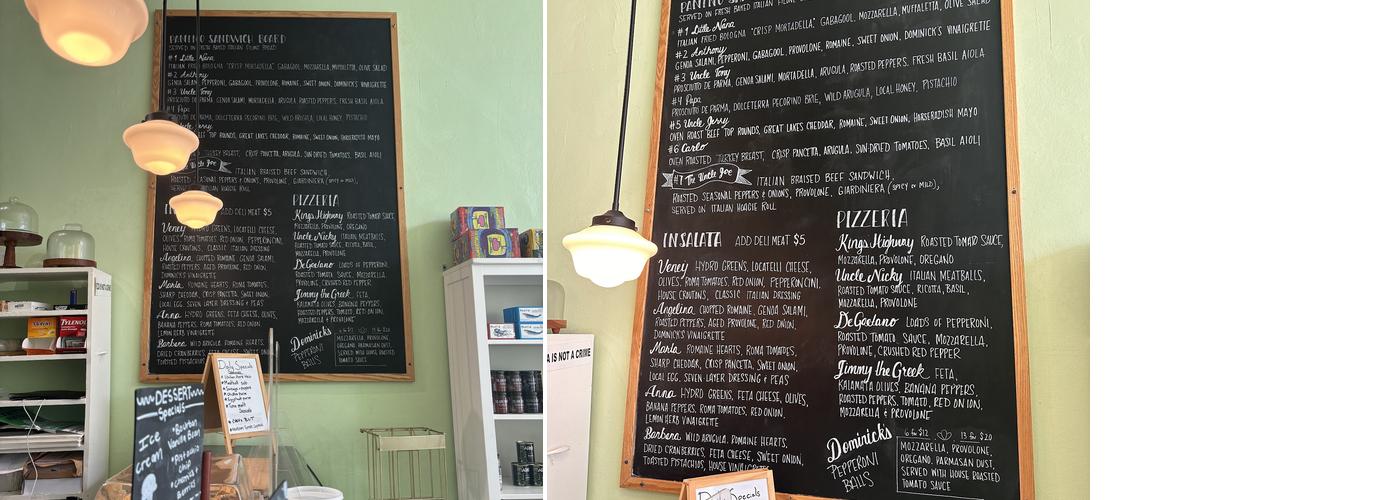 PANINO SANDWICH BOARD
SERVED ON FRESH BAKED ITALIAN
#1 Little Nana
ITALIAN FRIED BOLOGNA "CRISP MORTADELLA," GABAGOOL, MOZZARELLA, MUFFALETTA, OLIVE SALAD
#2 Anthony
GENOA SALAMI, PEPPERONI, GABAGOOL, PROVOLONE, ROMAINE, SWEET ONION, DOMINICK'S VINAIGRETTE
#3 Uncle Tony
PROSCIUTO DE PARMA, GENOA SALAMI, MORTADELLA, ARUGULA, ROASTED PEPPERS, FRESH BASIL AIOLA
#4 Papa
PROSCIUTO DE PARMA, DOLCETERRA PECORINO BRIE, WILD ARUGULA, LOCAL HONEY, PISTACHIO
#5 Uncle Jerry
OVEN ROAST BEEF TOP ROUNDS, GREAT LAKES CHEDDAR, ROMAINE, SWEET ONION, HORSERADISH MAYO
#6 Carlo
OVEN ROASTED TURKEY BREAST, CRISP PANCETTA, ARUGULA, SUN-DRIED TOMATOES, BASIL AIOLI
#7 The Uncle Joe ITALIAN BRAISED BEEF SANDWICH,
ROASTED SEASONAL PEPPERS & ONIONS, PROVOLONE, GIARDINIERA (SPICY or MILD),
SERVED ON ITALIAN HOAGIE ROLL
INSALATA ADD DELI MEAT $5
Veney HYDRO GREENS, LOCATELLI CHEESE,
OLIVES, ROMA TOMATOES, RED ONION, PEPPERONCINI,
HOUSE CROUTONS, CLASSIC ITALIAN DRESSING
Angelina CHOPPED ROMAINE, GENOA SALAMI,
ROASTED PEPPERS, AGED PROVOLONE, RED ONION,
DOMINICK'S VINAIGRETTE
Maria ROMAINE HEARTS, ROMA TOMATOES,
SHARP CHEDDAR, CRISP PANCETTA, SWEET ONION,
LOCAL EGG, SEVEN-LAYER DRESSING & PEAS
Anna HYDRO GREENS, FETA CHEESE, OLIVES,
BANANA PEPPERS, ROMA TOMATOES, RED ONION,
LEMON HERB VINAIGRETTE
Barbera WILD ARUGULA, ROMAINE HEARTS,
DRIED CRANBERRIES, FETA CHEESE, SWEET ONION,
TOASTED PISTACHIOS, HOUSE VINAIGRETTE
PIZZERIA
Kings Highway ROASTED TOMATO SAUCE,
MOZZARELLA, PROVOLONE, OREGANO
Uncle Nicky ITALIAN MEATBALLS,
ROASTED TOMATO SAUCE, RICOTTA, BASIL,
MOZZARELLA, PROVOLONE
DeGaetano LOADS OF PEPPERONI,
ROASTED TOMATO SAUCE, MOZZARELLA,
PROVOLONE, CRUSHED RED PEPPER
Jimmy the Greek FETA,
KALAMATA OLIVES, BANANA PEPPERS,
ROASTED PEPPERS, TOMATO, RED ONION,
MOZZARELLA & PROVOLONE
Dominick's
PEPPERONI
BALLS
6 for $12 13 for $20
MOZZARELLA, PROVOLONE,
OREGANO, PARMASAN DUST,
SERVED WITH HOUSE ROASTED
TOMATO SAUCE
A IS NOT A CRIME
Daily Specials
DESSERT
Specials
Ice
cream
Bourbon
Vanilla Bean
Pistachio
Chip
TYLENOL